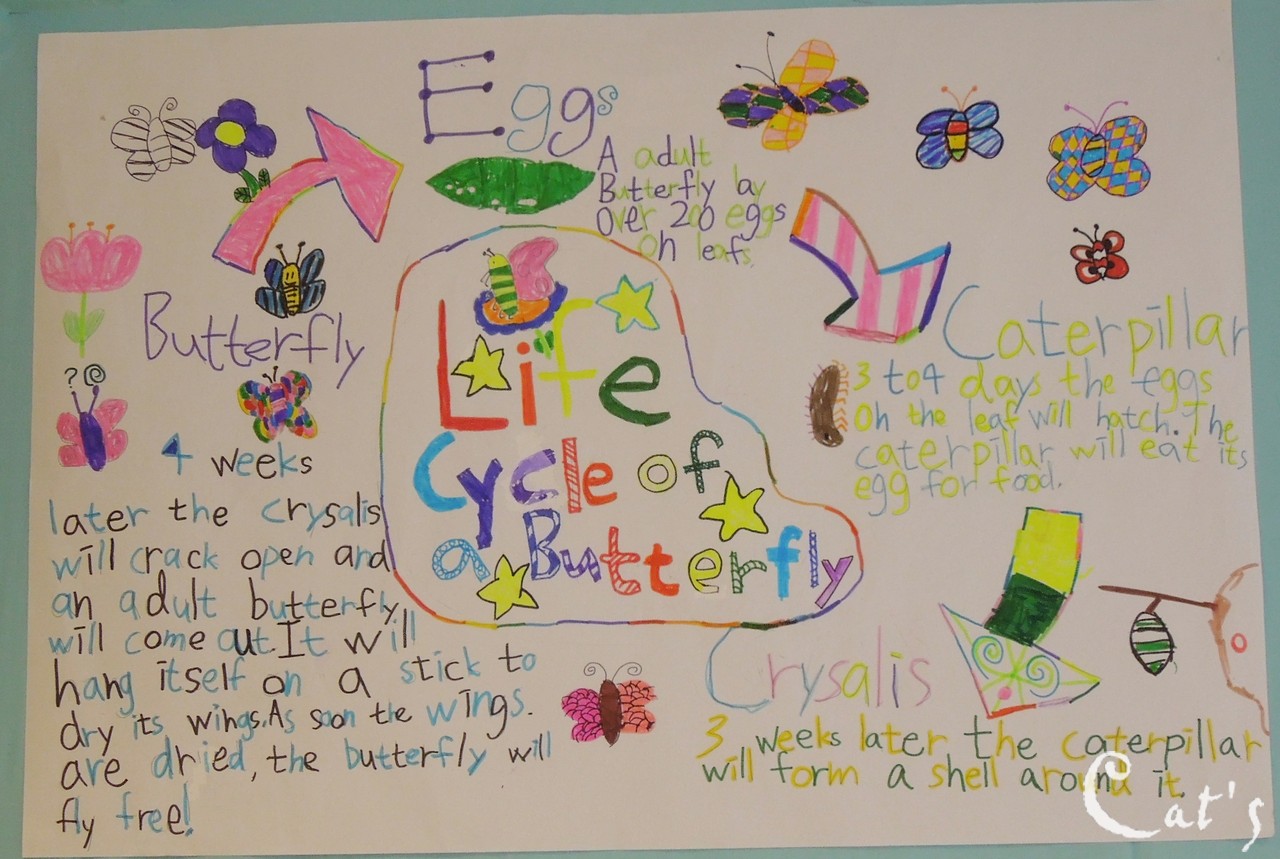 Eggs
A adult
Butterfly lay
Over 200 eggs
on leafs.
Life
Cycle of
a Butterfly
Caterpillar
3 to4 days the eggs
On the leaf will hatch. The
caterpillar will eat its
egg for food.
Crysalis
3 weeks later the caterpillar
will form a shell around it.
Butterfly
?
4 weeks
later the crysalis
will crack open and
an adult butterfly
will come out. It will
hang itself on a stick to
dry its wings. As soon the wings.
are dried, the butterfly will
fly free!
Cat's